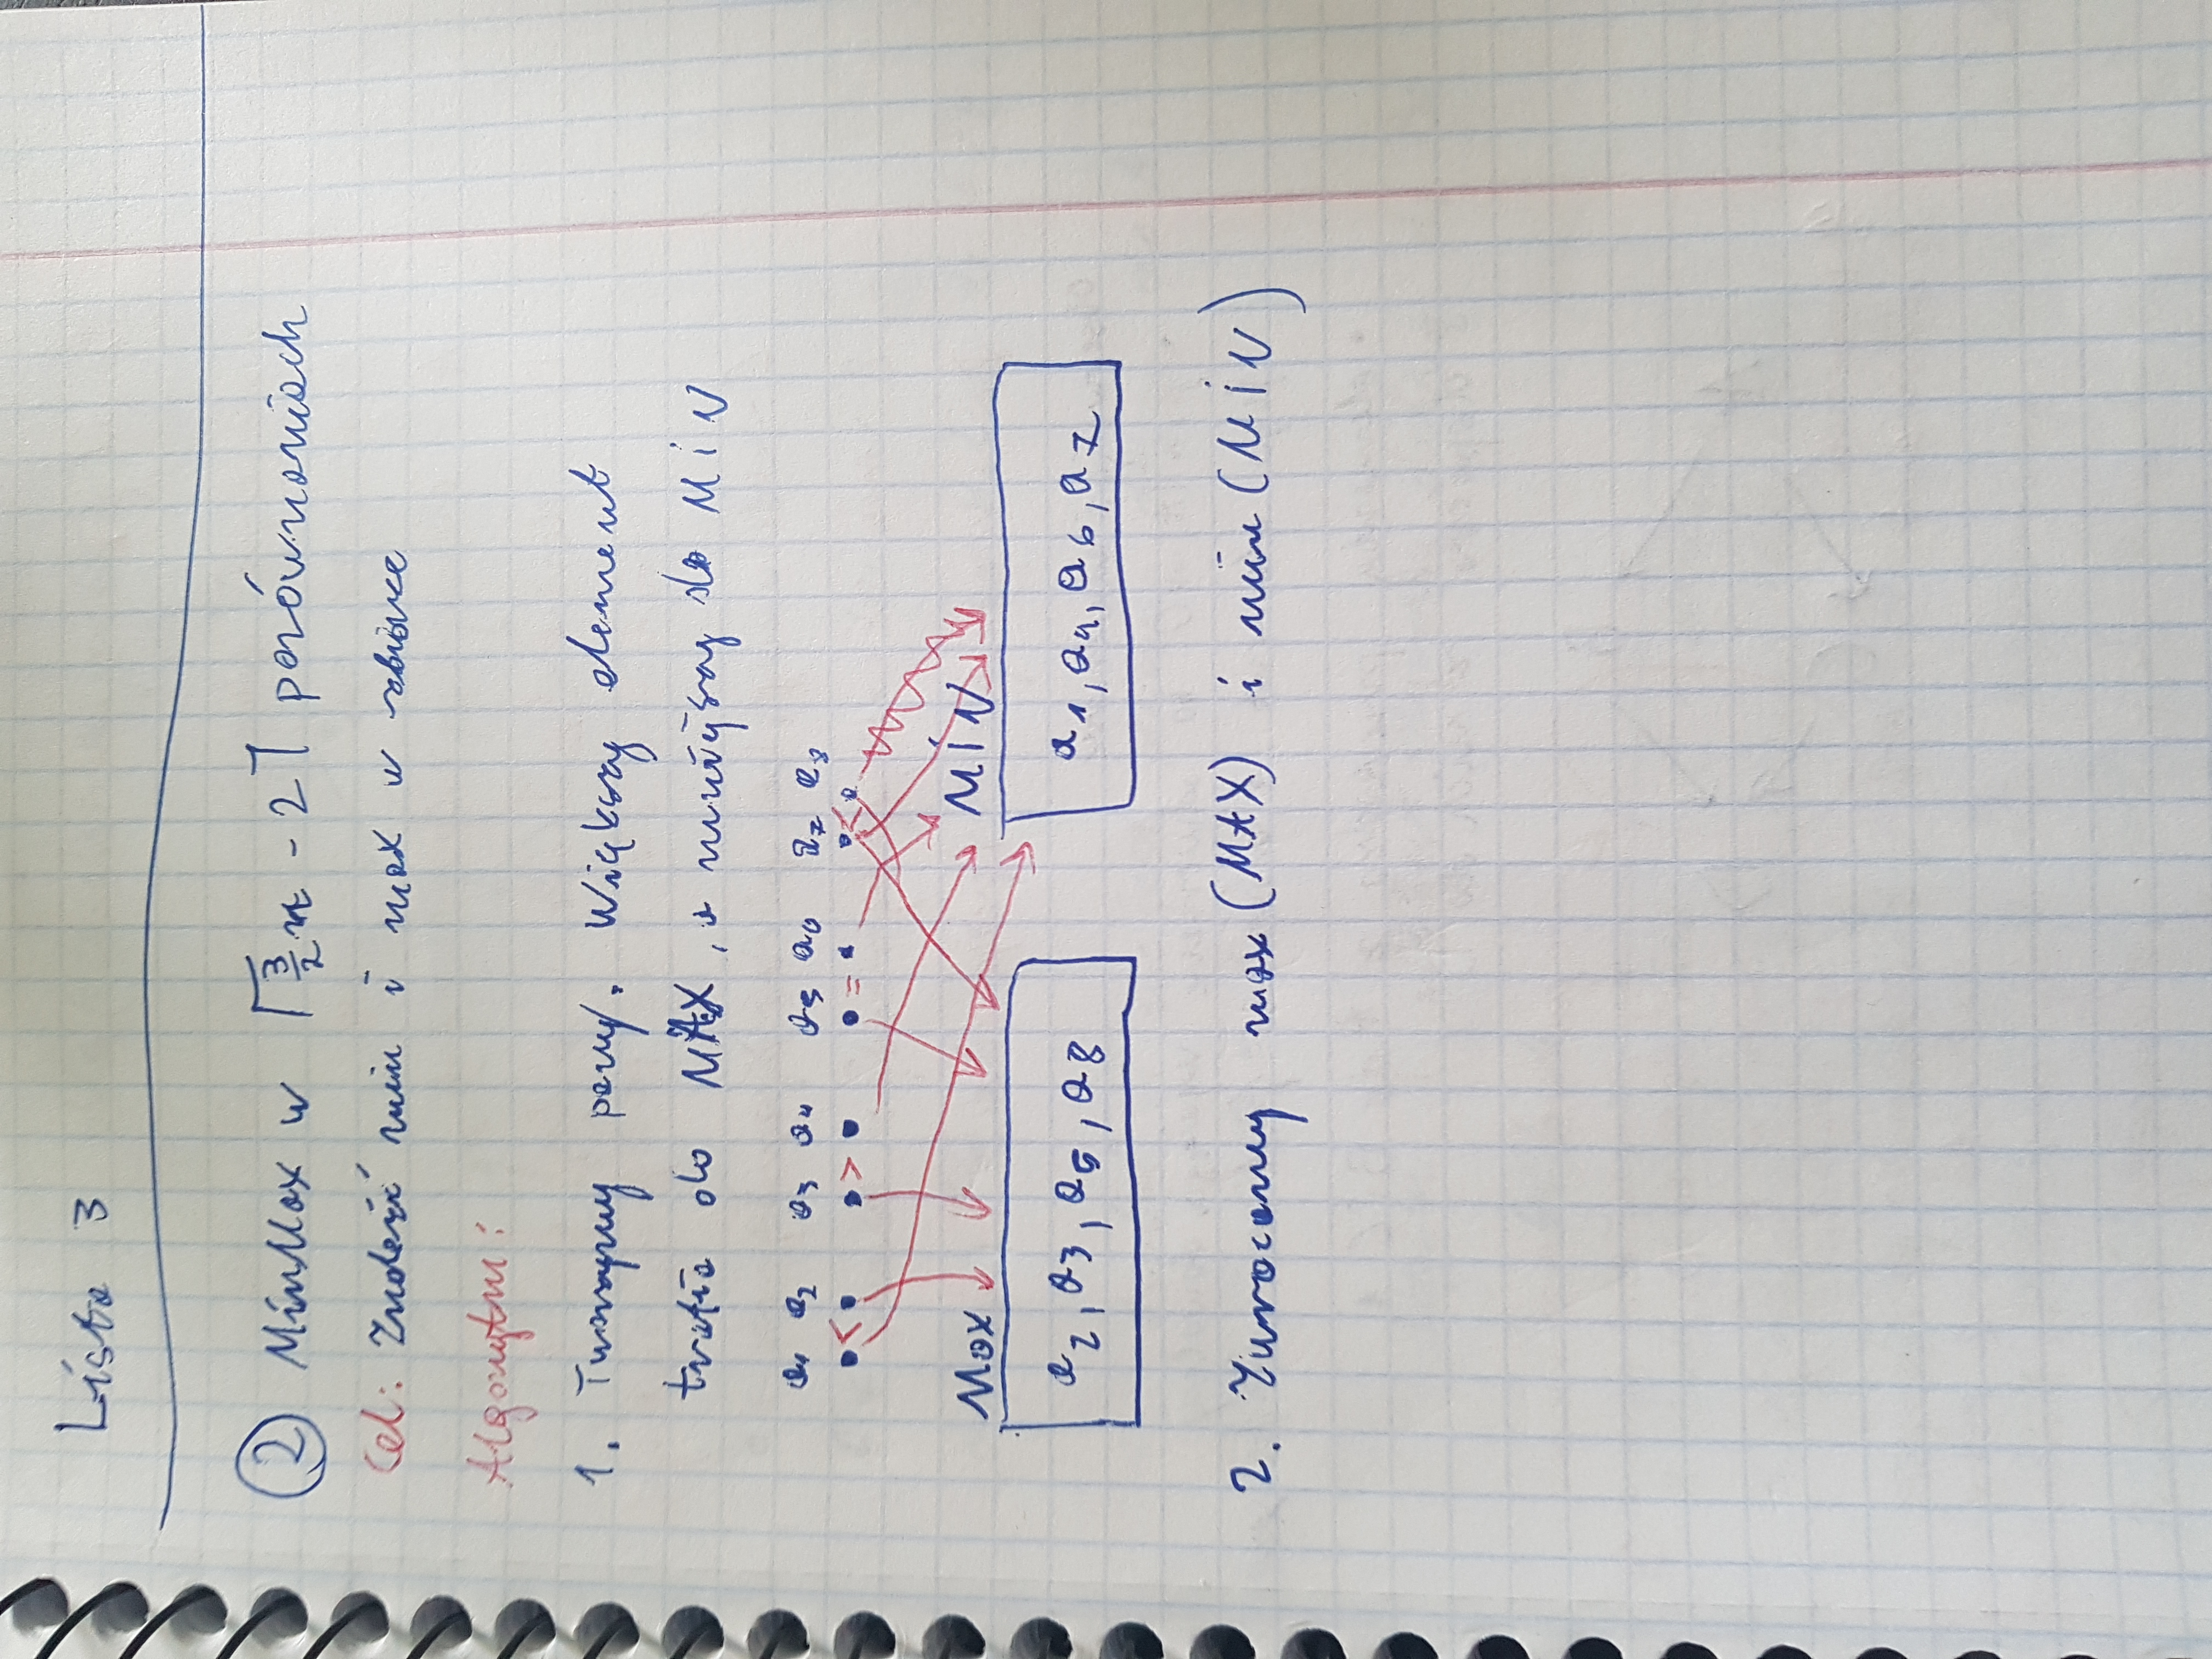 Lista 3
② MinMax w ⌈3/2 n - 2⌉ porównaniach
Cel: Znaleźć min i max w zbiorze
Algorytm:
1. Tworzymy pary. Większy element
trafia do MAX, a mniejszy do MIN
a1 a2 a3 a4 a5 a6 a7 a8
< > = <
Max MIN
a2, a3, a5, a8 a1, a4, a6, a7
2. Zwracamy max (MAX) i min (MIN)